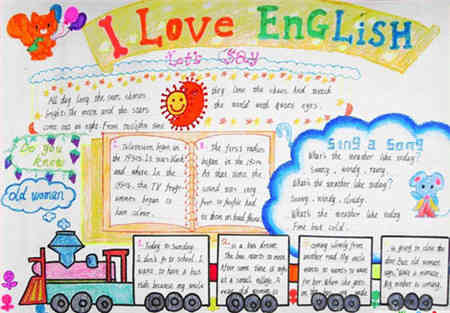 I LOVE ENGLISH
Let's Say
All day long the sun shines
bright. The moon and the stars
come out at night. From twilight time
they
the world with eyes.
Do you
know
old woman
1. Television began in
the 1920s. It was black
and white. In the
1950s, the TV
began to
have colour.
2. the first radios
began in the
At that time, the
sound was very
poor so people had
to
Sing a Song
What's the weather like today?
Sunny, windy, rainy.
What's the weather like today?
Sunny, windy, cloudy.
What's the weather like today
Fine but cold.
1. Today is Sunday.
I don't go to school. I
want to have a bus
ride because my uncle
is a bus driver.
The bus starts to move
After some time it stops
at a small village. A
very old woman is
coming slowly from
another road. My uncle
wants to wait
for her. When she gets
on the bus, my uncle
is going to close the
door but old woman
says, wait a minute.
My mother is coming.